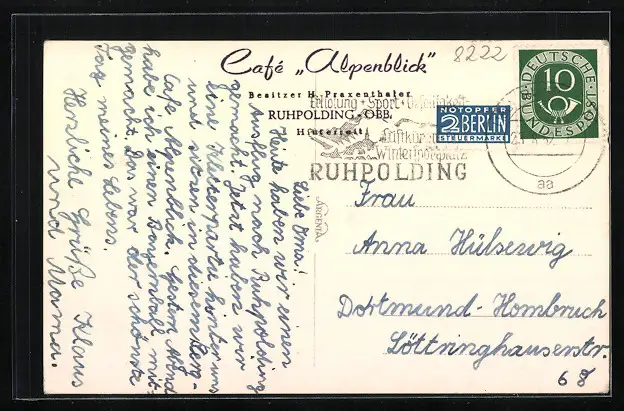 Café „Alpenblick"
8222
Besitzer H. Praxenthaler
RUHPOLDING-OBB.
Hinterreit
Erholung · Sport · Geselligkeit
Luftkur
Winterportplatz
RUHPOLDING
NOTOPFER
2 BERLIN
STEUERMARKE
DEUTSCHE BUNDESPOST
10
aa
ARGENTA
Liebe Oma!
Heute haben wir einen
Ausflug nach Ruhpolding
gemacht. Jetzt haben wir
eine Kletterpartie hinter uns
und sitzen in diesem Berg-
Cafe Alpenblick. Gestern Abend
habe ich einen Bauernball mit-
gemacht. Das war der schönste
Tag meines Lebens.
Herzliche Grüße Klaus
und Mama.
Frau
Anna Hülsewig
Dortmund-Hombruch
Löttringhauserstr.
68